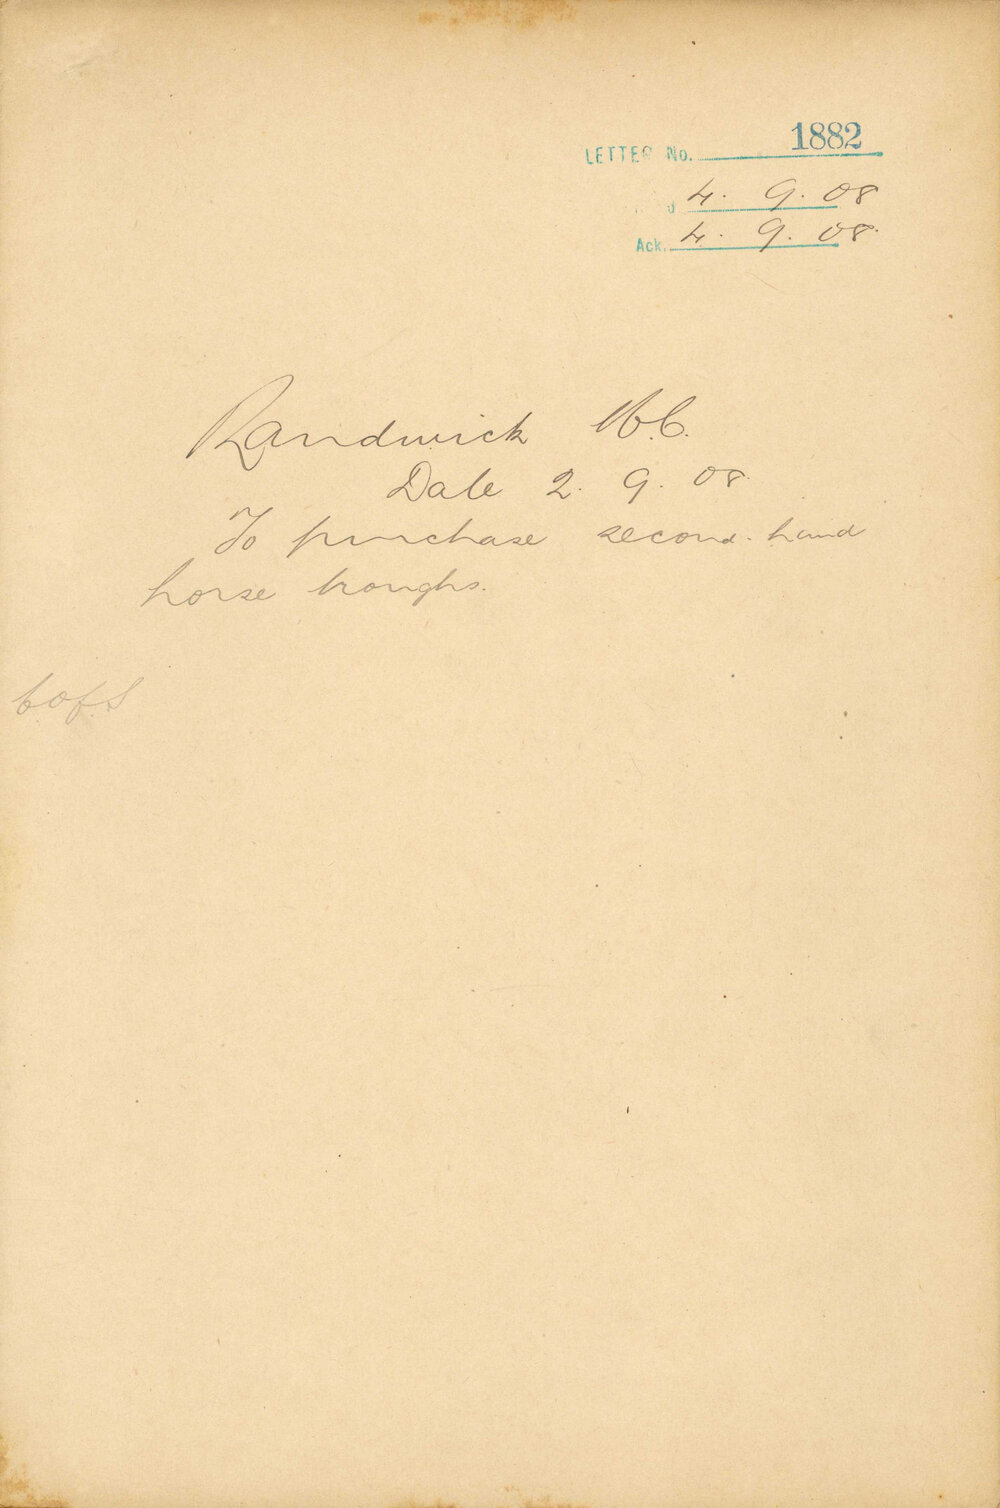 LETTER No. 1882
4. 9. 08
Ack. 4. 9. 08.
Randwick M.C.
Date 2. 9. 08.
To purchase second-hand
horse troughs.
C of S